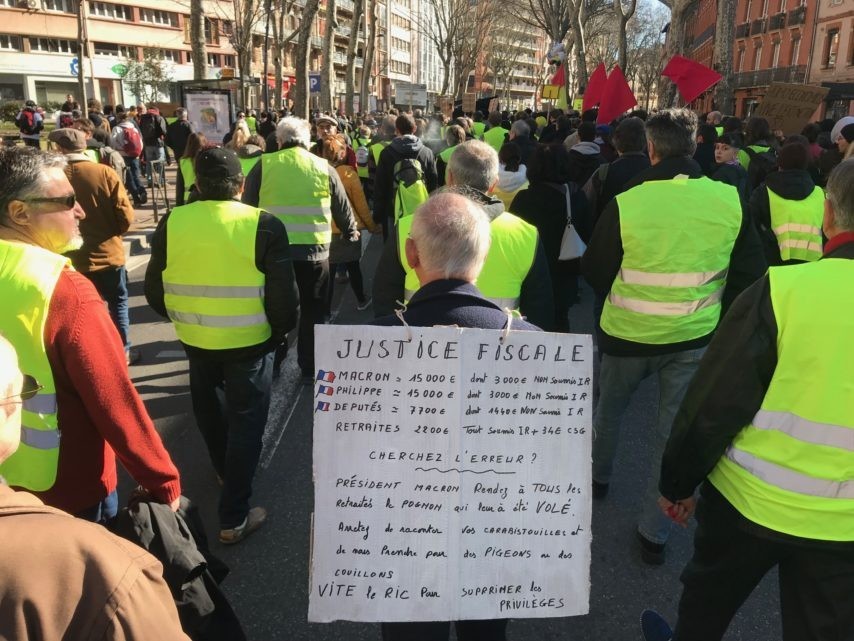 JUSTICE FISCALE
MACRON ≃ 15 000 € dont 3 000 € NON Soumis IR
PHILIPPE ≃ 15 000 € dont 3000 € NON Soumis IR
DEPUTÉS ≃ 7700 € dont 1440 € NON Soumis IR
RETRAITES 2200 € Tout Soumis IR + 34€ CSG
CHERCHEZ L'ERREUR ?
PRÉSIDENT MACRON Rendez à TOUS les
Retraités le POGNON qui leur à été VOLÉ.
Arretez de raconter vos CARABISTOUILLES et
de nous Prendre pour des PIGEONS ou des
COUILLONS
VITE le RIC Pour SUPPRIMER les
PRIVILÈGES